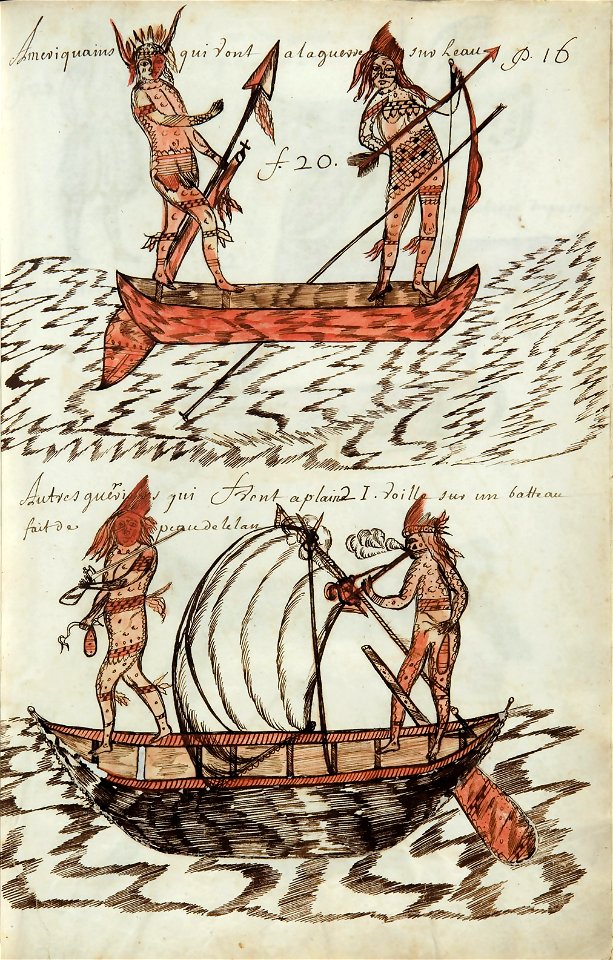 Ameriquains qui vont a la guerre sur Leau p. 16
f. 20.
Autres guerriers qui Vent a plain 21. voille sur un batteau
fait de peau de lelan